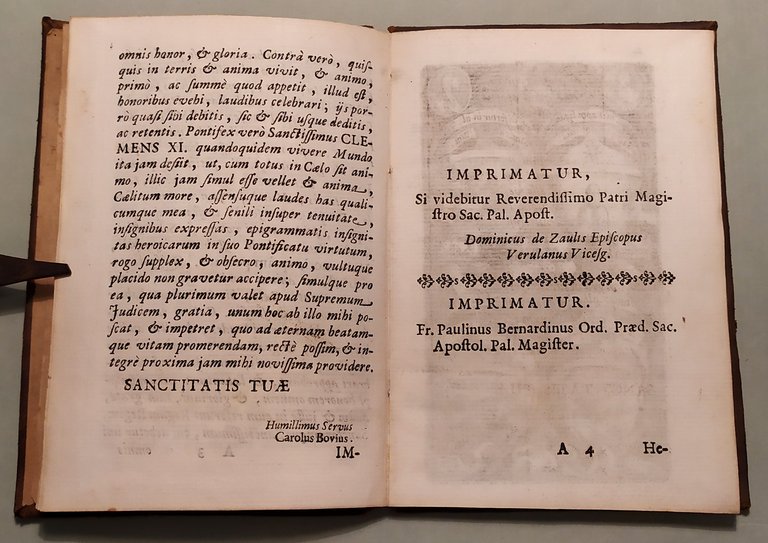 omnis honor, & gloria. Contrà verò, quis-
quis in terris & anima vivit, & animo,
primò, ac summè quod appetit, illud est,
honoribus evehi, laudibus celebrari; ijs por-
rò quasi sibi debitis, sic & sibi usque deditis,
ac retentis. Pontifex verò Sanctissimus CLE-
MENS XI. quandoquidem vivere Mundo
ita jam desiit, ut, cum totus in Cælo sit ani-
mo, illic jam simul esse vellet & anima,
Cælitum more, assensuque laudes has quali-
cumque mea, & senili insuper tenuitate,
insignibus expressas, epigrammatis insigni-
tas heroicarum in suo Pontificatu virtutum,
rogo supplex, & obsecro, animò, vultuque
placido non gravetur accipere; simulque pro
ea, qua plurimum valet apud Supremum
Judicem, gratia, unum hoc ab illo mihi po-
scat, & impetret, quo ad æternam beatam-
que vitam promerendam, rectè possim, & in-
tegrè proxima jam mihi novissima providere.
SANCTITATIS TUÆ
Humillimus Servus
Carolus Bovius.
IM-
IMPRIMATUR,
Si videbitur Reverendissimo Patri Magi-
stro Sac. Pal. Apost.
Dominicus de Zaulis Episcopus
Verulanus Vicesg.
IMPRIMATUR.
Fr. Paulinus Bernardinus Ord. Præd. Sac.
Apostol. Pal. Magister.
A 4 He-